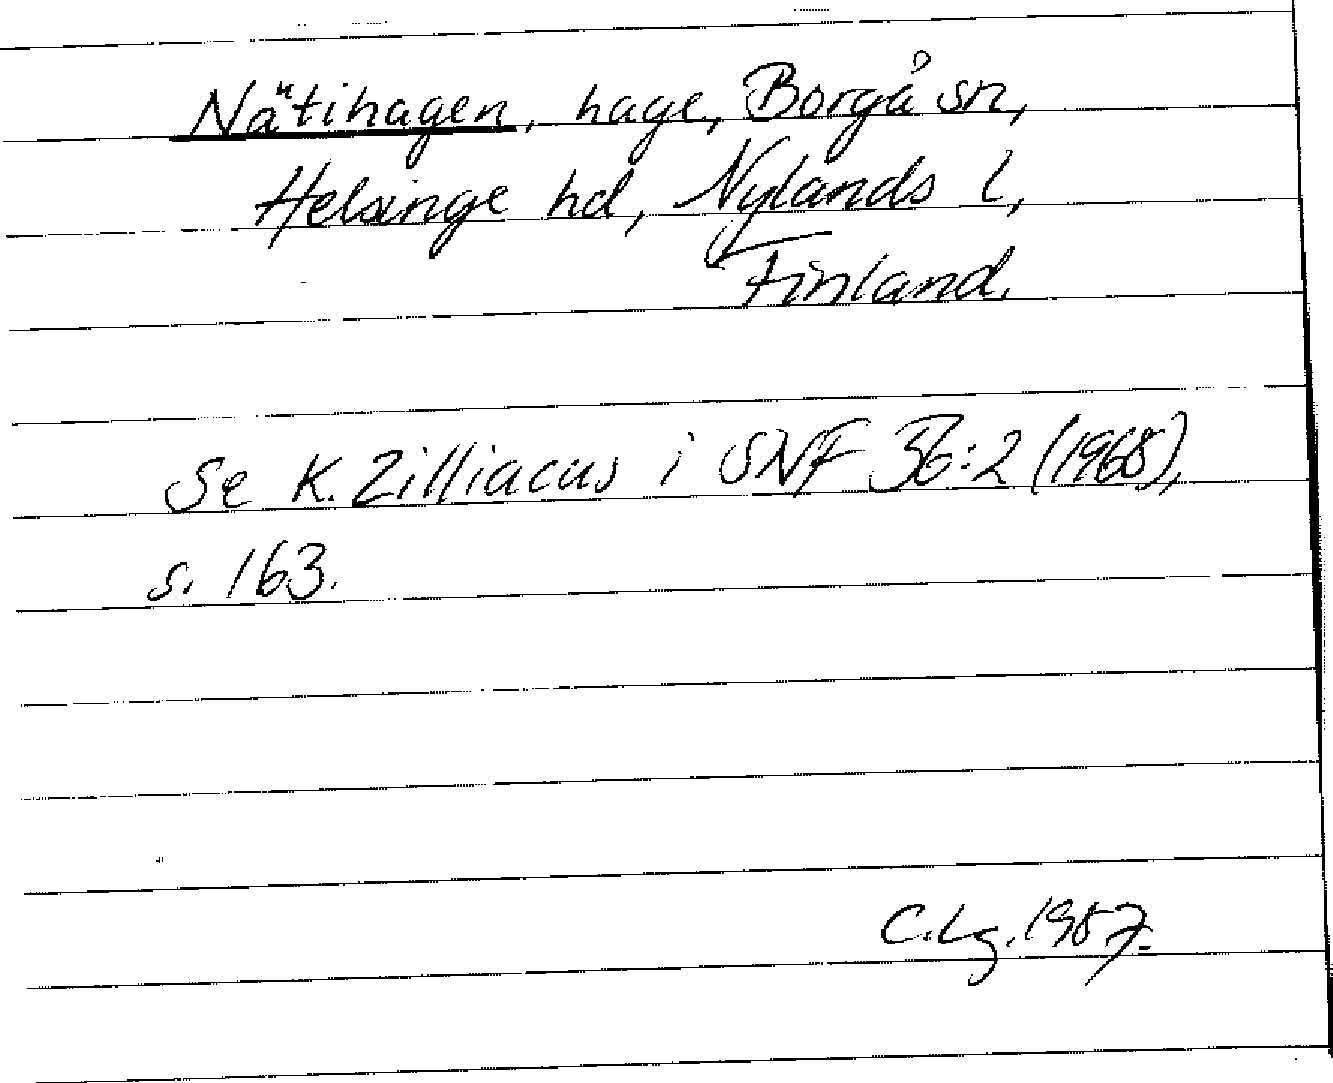 Nätihagen, hage, Borgå sn,
Helsinge hd, Nylands l,
Finland.
Se K. Zilliacus i SNF 56:2 (1968),
s. 163.
C.Lg. 1987.